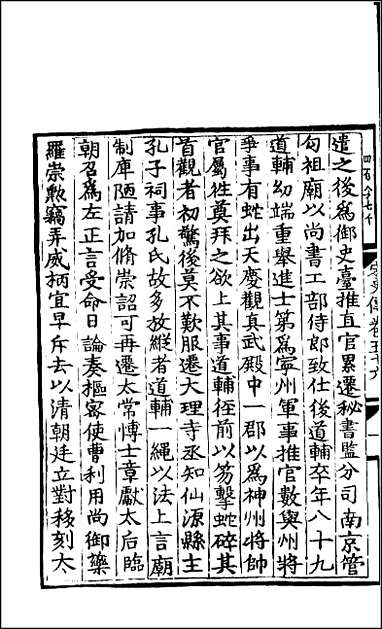 遣之後爲御史臺推直官累遷秘書監分司南京管
勾祖廟以尚書工部侍郎致仕後道輔卒年八十九
道輔幼端重舉進士第爲寧州軍事推官數與州將
爭事有蛇出天慶觀真武殿中一郡以爲神州將帥
官屬徃奠拜之欲上其事道輔徑前以笏擊蛇碎其
首觀者初驚後莫不歎服遷大理寺丞知仙源縣主
孔子祠事孔氏故多放縱者道輔一繩以法上言廟
制庫陋請加脩崇詔可再遷太常博士章獻太后臨
朝召爲左正言受命日論奏樞宻使曹利用尚御藥
羅崇勲竊弄威柄宜早斥去以清朝廷立對移刻太
宋史傳卷五十六